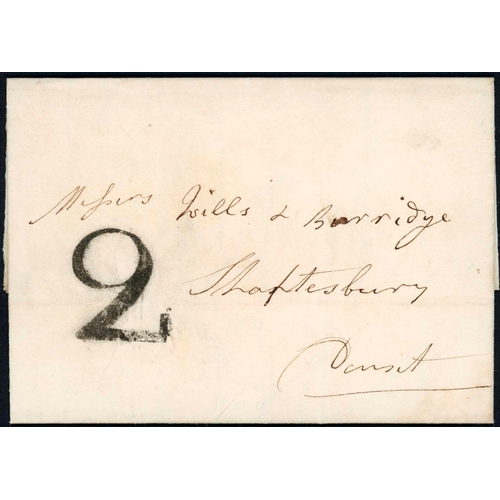 Messrs Wills & Burridge
2
Shaftesbury
Dorset